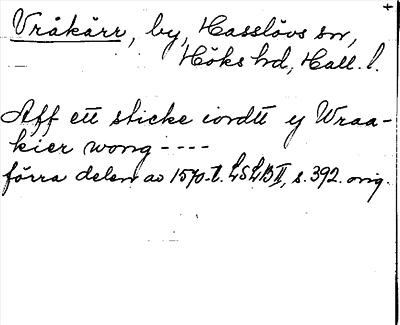 Vråkärr, by, Hasslövs sn,
Höks hd, Hall. l.
Aff ett sticke iordtt ij Wraa-
kier wong ----
förra delen av 1570-t. LSLB II, s. 392. orig.